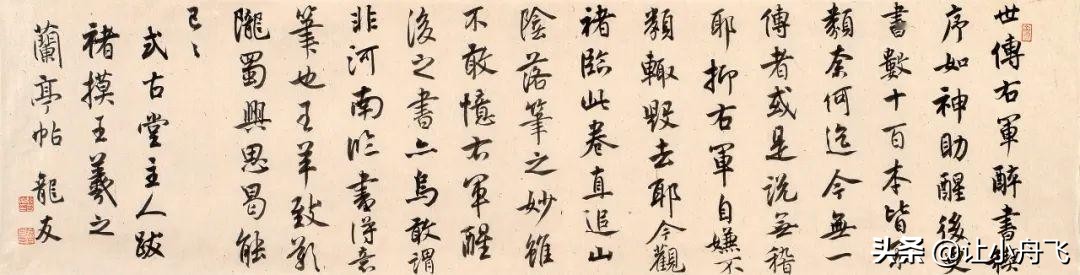 世傳右軍醉書禊
序如神助醒後更
書數十百本皆
類奈何迄今無一
傳者或是說無稽
耶抑右軍自嫌不
類輒毀去耶今觀
褚臨此卷直追山
陰落筆之妙雖
不敢憶右軍醒
後之書亦烏敢謂
非河南臨書得意
筆也王羊致歎
隴蜀興思曷能
已〻
式古堂主人跋
褚摸王羲之
蘭亭帖 龍友
头条 @让小舟飞